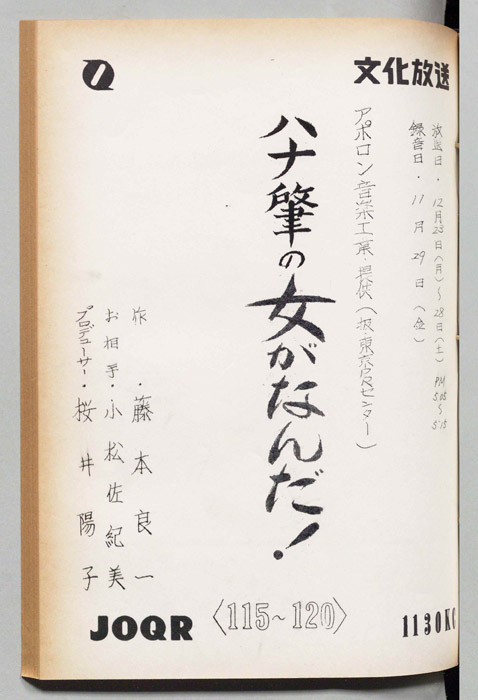 文化放送
放送日・12月23日(月)〜28日(土) PM 5.05〜5.15
録音日・11月29日(金)
アポロン音楽工業・提供(扱・東京宣センター)
ハナ肇の女がなんだ!
作・藤本良一
お相手・小松佐紀美
プロデューサー・桜井陽子
JOQR
〈115~120〉
1130KC